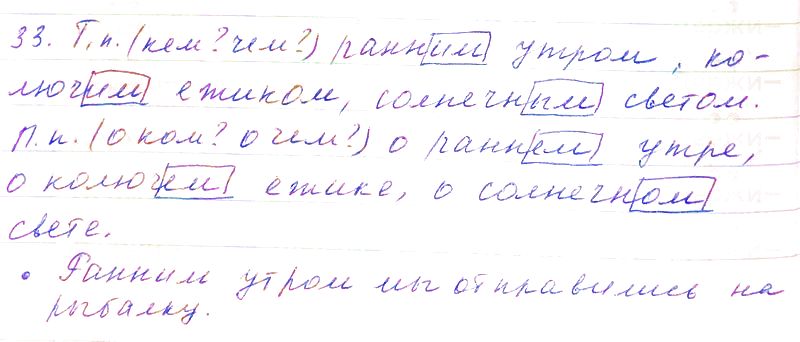 33. Т.п. (кем? чем?) ранним утром, ко-
лючим ежиком, солнечным светом.
П.п. (о ком? о чем?) о раннем утре,
о колючем ежике, о солнечном
свете.
• Ранним утром мы отправились на
рыбалку.